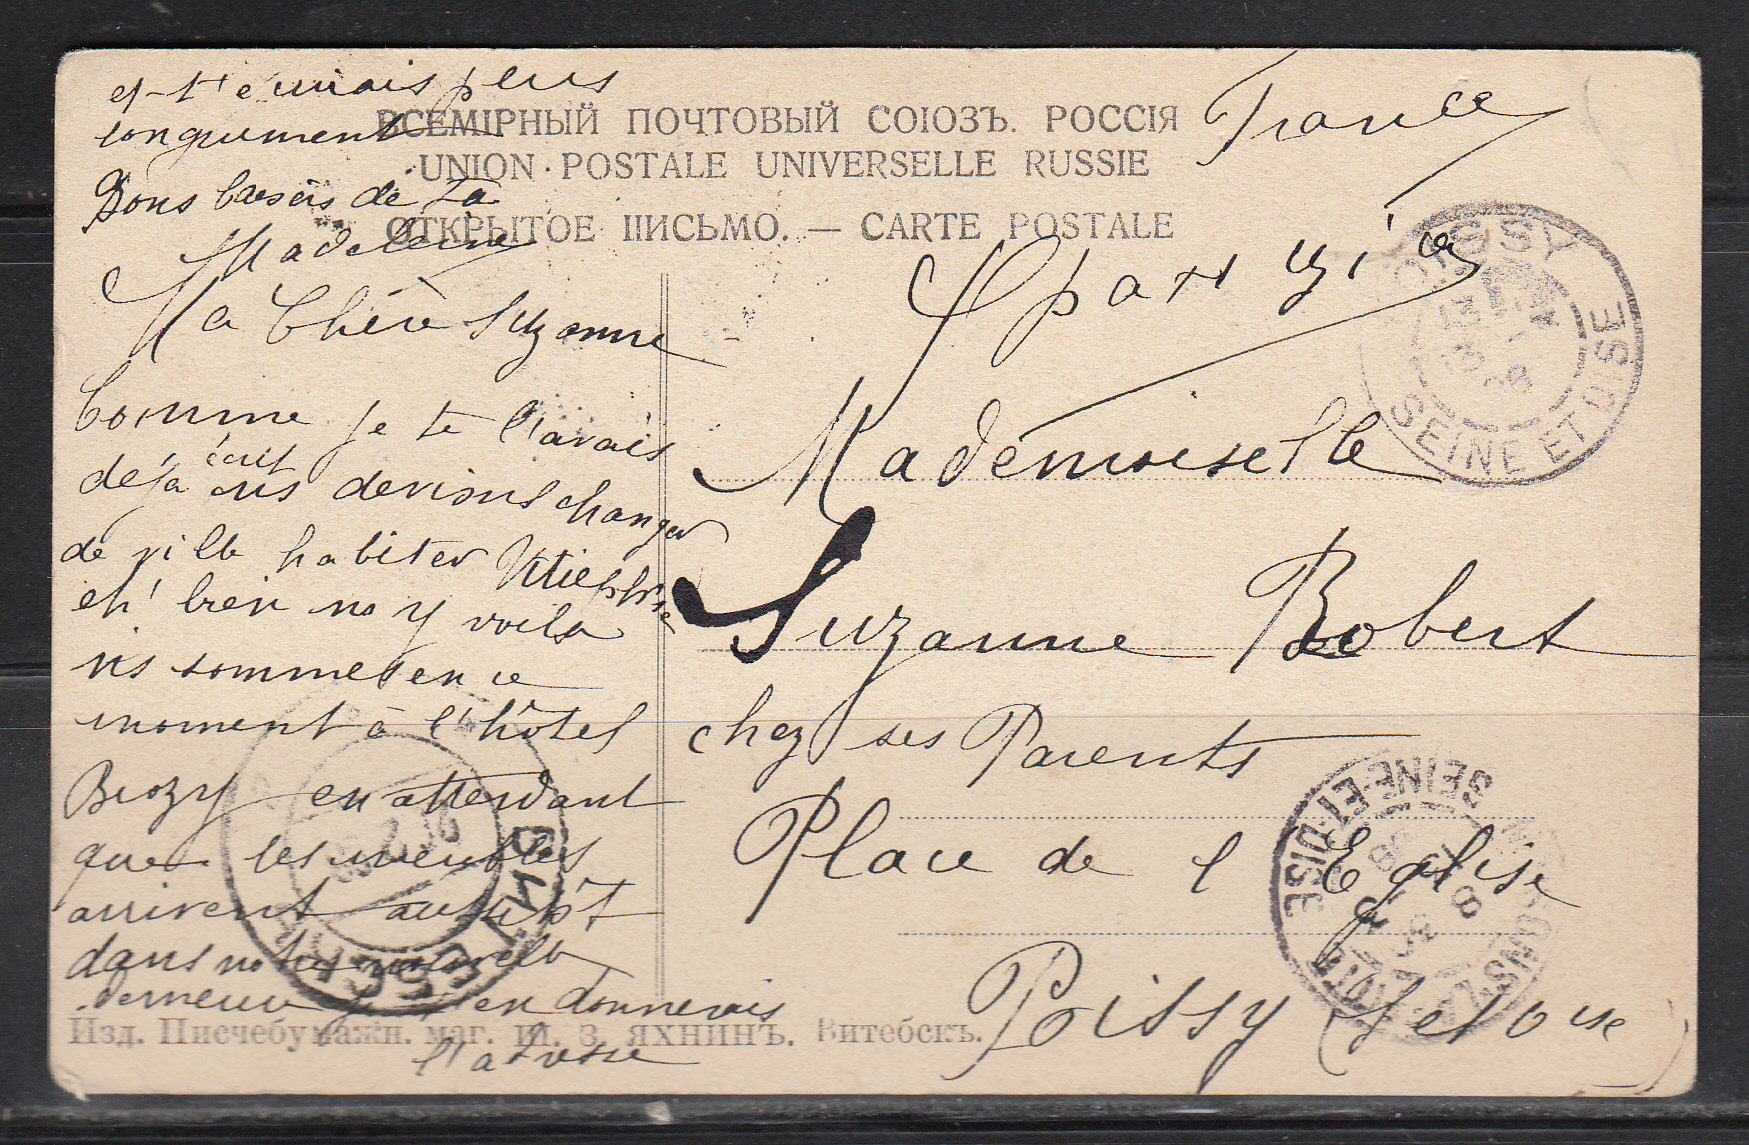 et t'écrirais plus
longuement
Bons baisers de ta
Madeleine
ВСЕМІРНЫЙ ПОЧТОВЫЙ СОЮЗЪ. РОССІЯ
UNION POSTALE UNIVERSELLE RUSSIE
ОТКРЫТОЕ ПИСЬМО. — CARTE POSTALE
France
Франція
Ma Chère Suzanne
Comme je te l'avais
déjà écrit ns devions changer
de ville habiter
eh! bien ns y voila
ns sommes en ce
moment à l'hôtel
Brozy en attendant
que les meubles
arrivent aussitôt
dans notre nouvelle
demeure je t'en donnerais
l'adresse
Mademoiselle
Suzanne Robert
chez ses Parents
Place de l Eglise
Poissy (Set Oise)
POISSY
SEINE ET OISE
SEINE-ET-OISE
ВИТЕБСКЪ
Изд. Писчебумажн. маг. Ш. З. ЯХНИНЪ. Витебскъ.